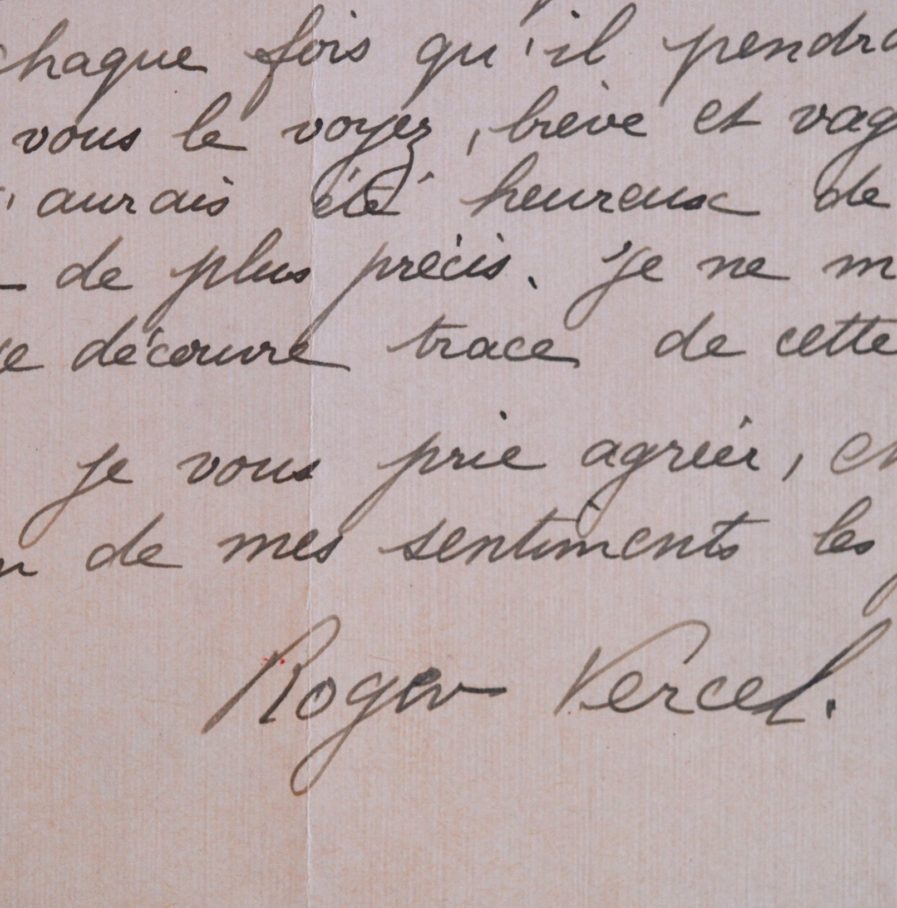 chaque fois qu'il pendra
vous le voyez, brève et vag
'aurais été heureux de
de plus précis. Je ne m
découvre trace de cette
Je vous prie agréer,
de mes sentiments les
Roger Vercel.